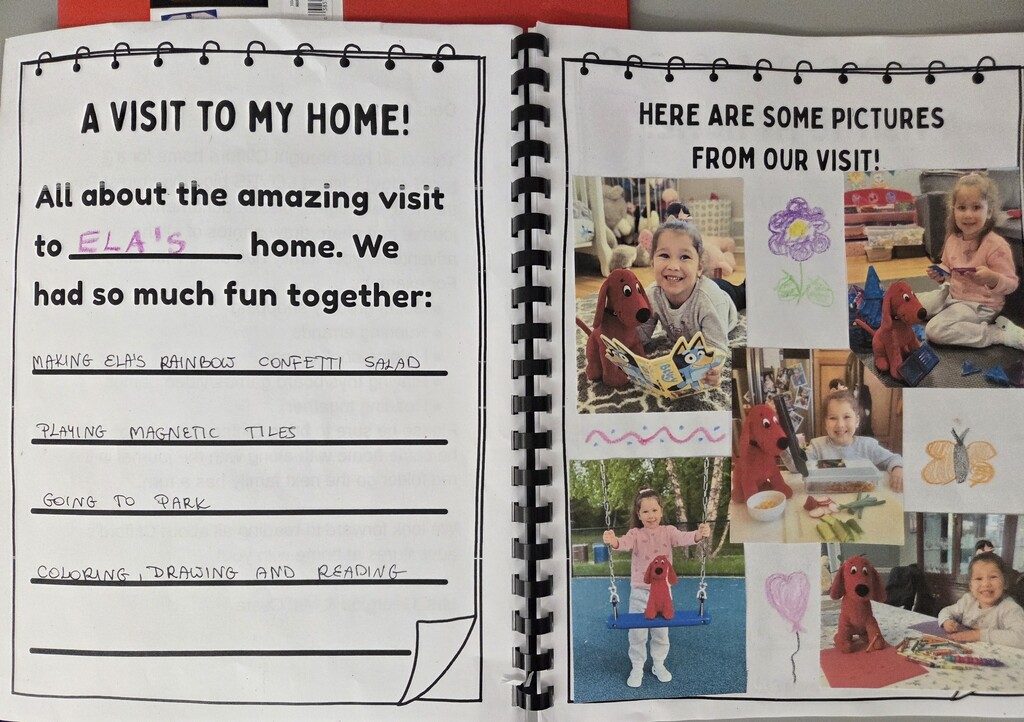 A VISIT TO MY HOME!
All about the amazing visit
to ELA'S home. We
had so much fun together:
MAKING ELA'S RAINBOW CONFETTI SALAD
PLAYING MAGNETIC TILES
GOING TO PARK
COLORING, DRAWING AND READING
HERE ARE SOME PICTURES
FROM OUR VISIT!